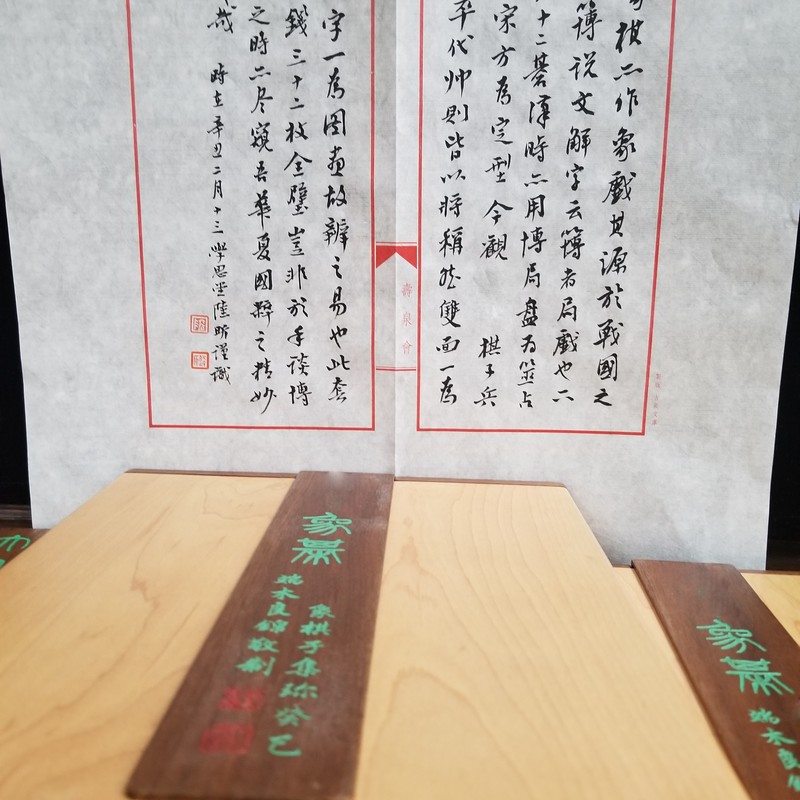 象棋亦作象戲其源於戰國之
簿説文解字云簿者局戲也六
十二棊漢時亦用博局盤爲筮占
宋方為定型今觀 棋子兵
卒代帅則皆以將稱然雙面一為
字一為圖畫故辨之易也此套
錢三十二枚全璧豈非於手談博
之時亦尽窺吾華夏國粹之精妙
哉 時在辛丑二月十三學思堂陸昕謹識
壽泉會
象棊
象棋子集珎癸巳
端木良錦敬制
象棊
端木良錦